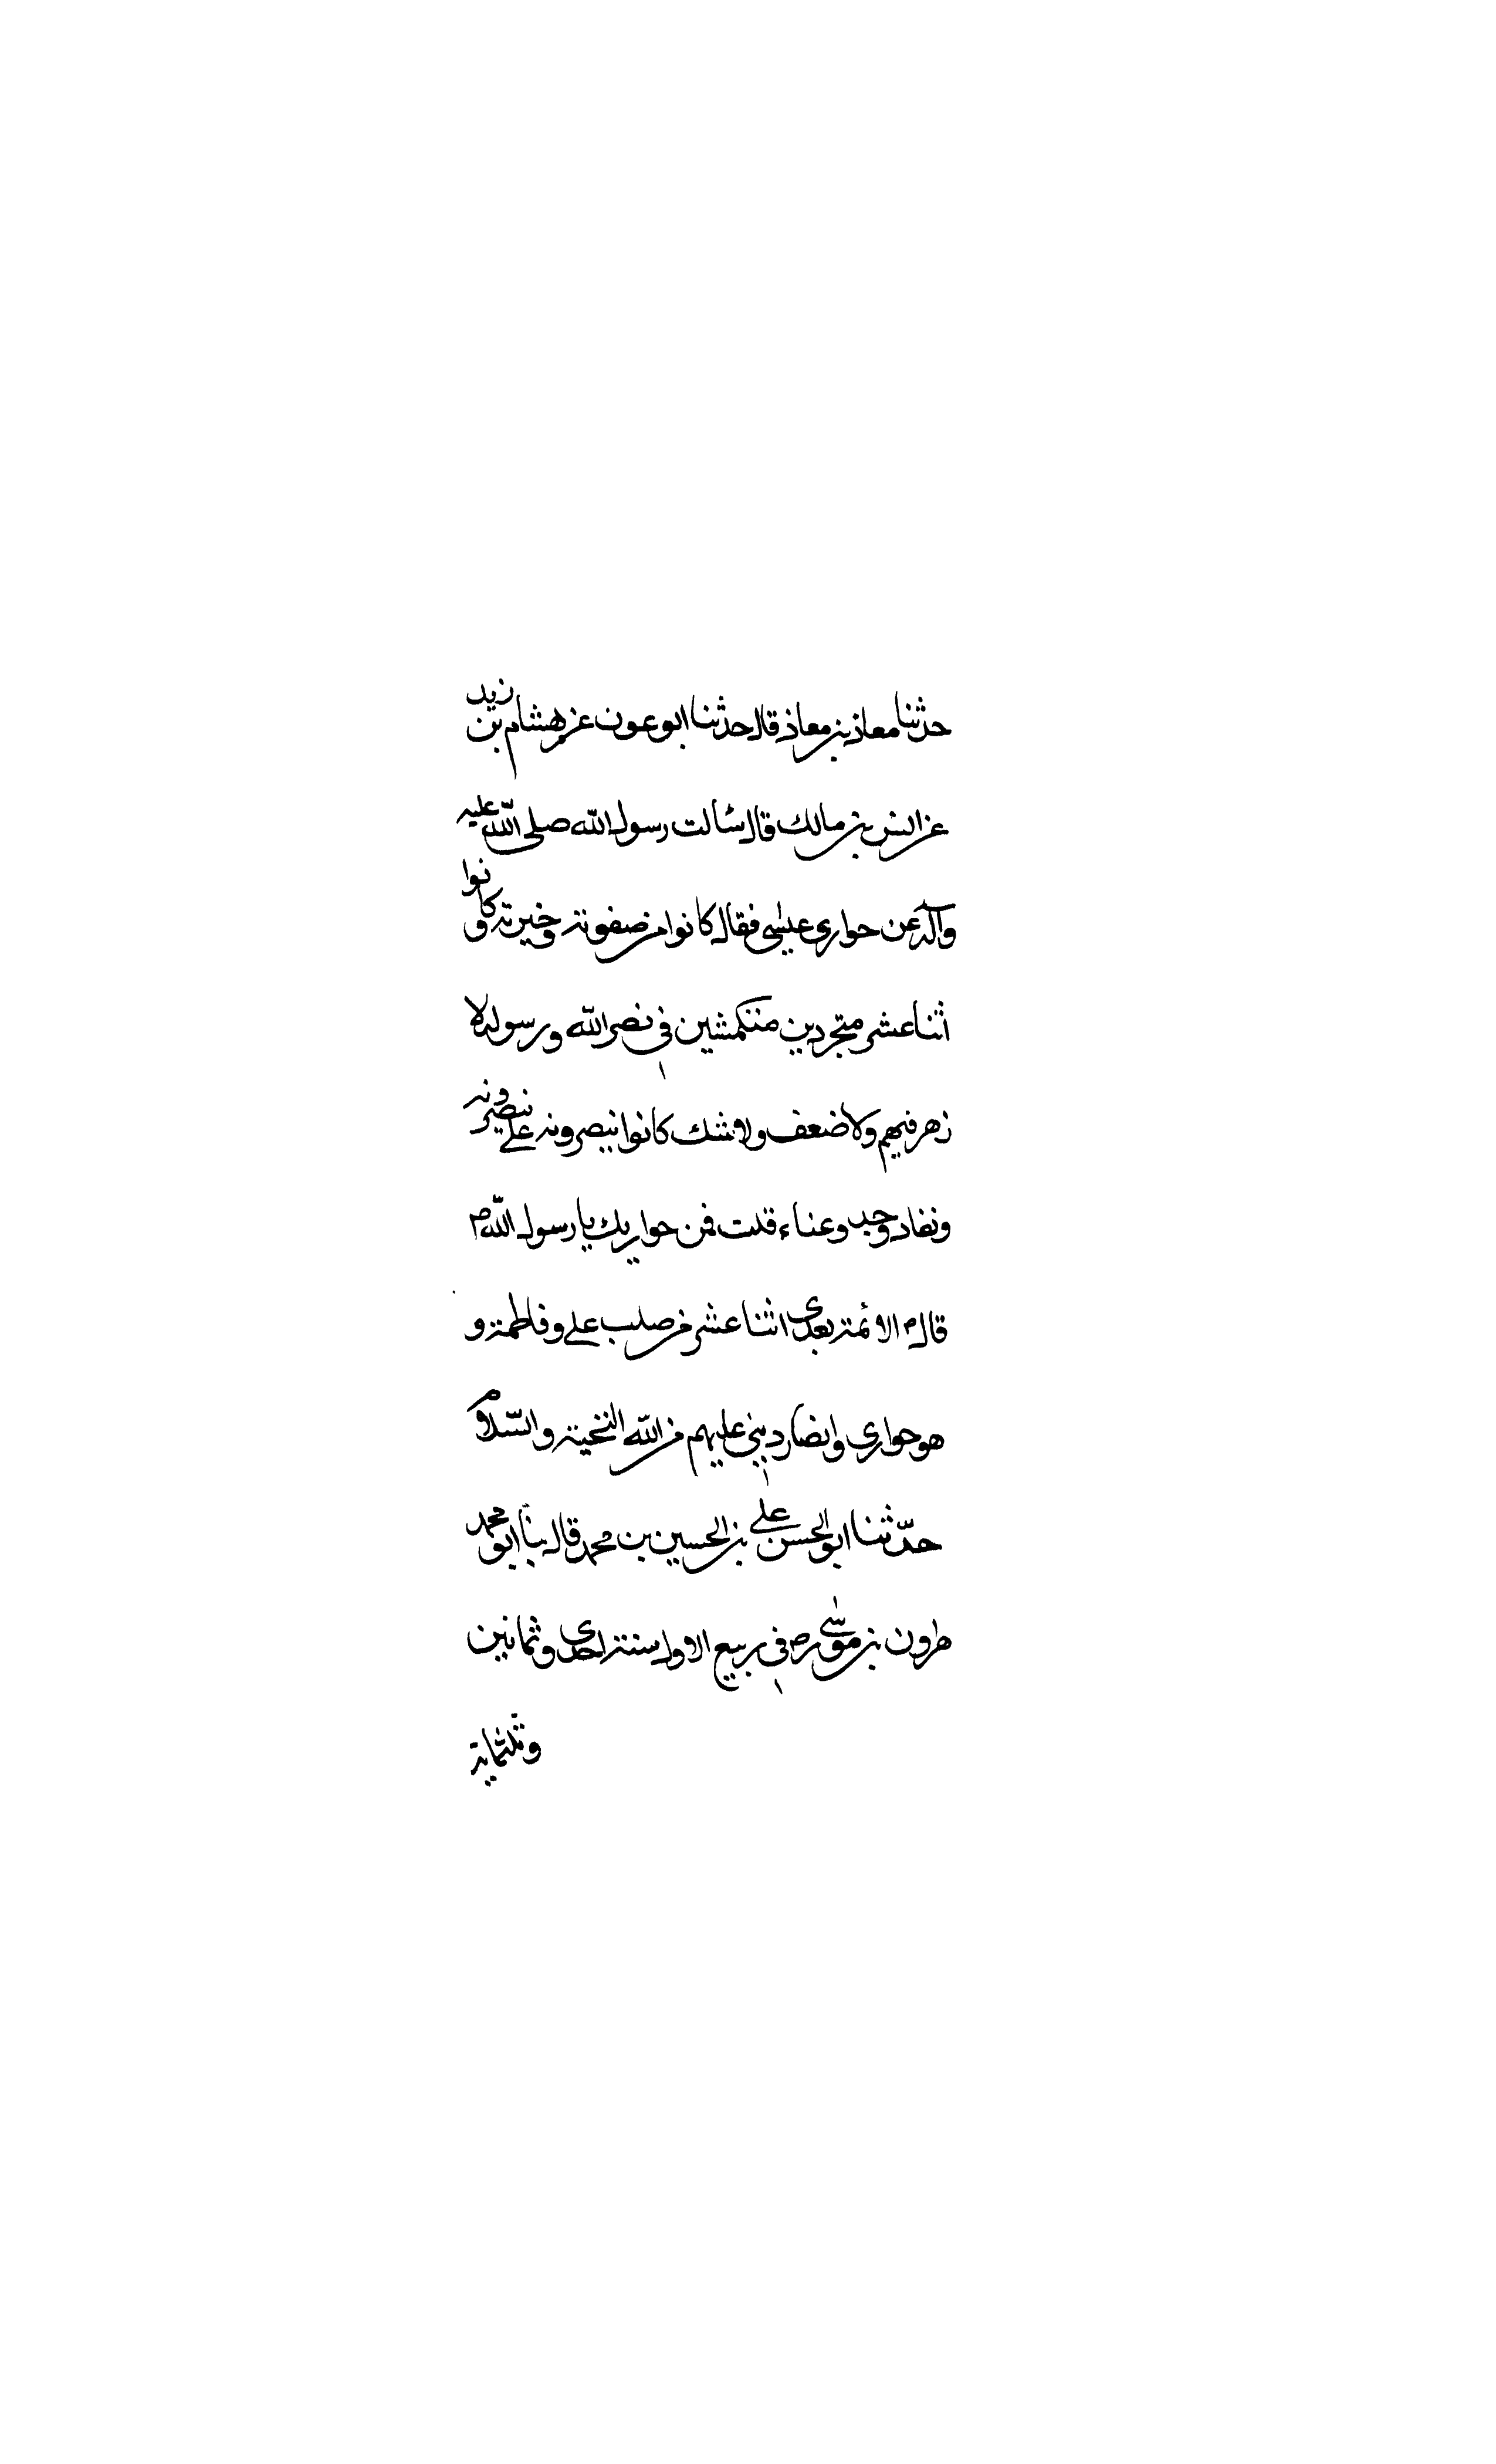 حدثنا معاذ بن معاذ قال حدثنا ابو عون عن هشام بن زيد
عن انس بن مالك قال سالت رسول الله صلى الله عليه
وآله عن حواري عيسى فقال كانوا من صفوته وخيرته وكانوا
اثنا عشر متجردين متكمشين في نصر الله ورسوله لا
زهر فيهم ولا ضعف ولا شك كانوا ينصرونه على
ونفاد وجد وعناء قلت فمن حواريك يا رسول الله ص
قال الائمة بعدي اثنا عشر من صلب علي وفاطمة و
هو حواري وانصار ديني عليهم من الله التحية والسّلام
حدّثنا ابو الحسن علي بن الحسين بن محمد قال ابو محمد
هرون بن موسى ره في ربيع الاول سنة احدى وثمانين
وثلثماية